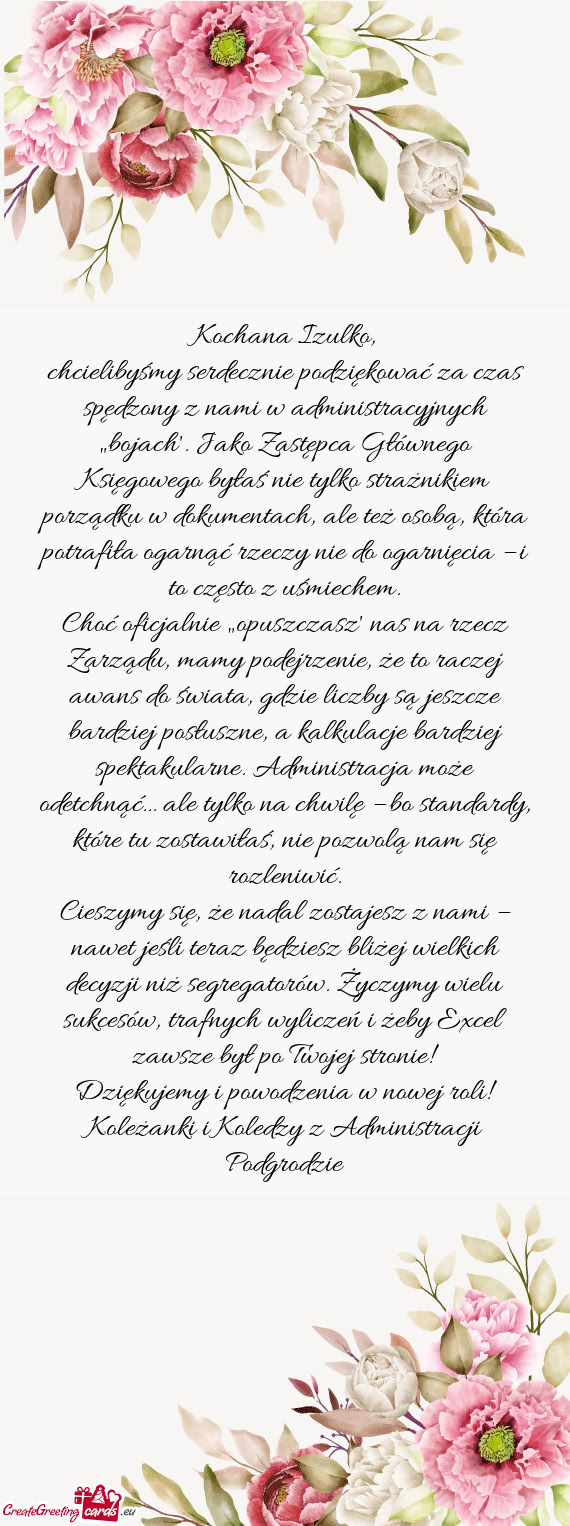 Kochana Izulko,
chcielibyśmy serdecznie podziękować za czas
spędzony z nami w administracyjnych
„bojach". Jako Zastępca Głównego
Księgowego byłaś nie tylko strażnikiem
porządku w dokumentach, ale też osobą, która
potrafiła ogarnąć rzeczy nie do ogarnięcia – i
to często z uśmiechem.
Choć oficjalnie „opuszczasz" nas na rzecz
Zarządu, mamy podejrzenie, że to raczej
awans do świata, gdzie liczby są jeszcze
bardziej posłuszne, a kalkulacje bardziej
spektakularne. Administracja może
odetchnąć... ale tylko na chwilę – bo standardy,
które tu zostawiłaś, nie pozwolą nam się
rozleniwić.
Cieszymy się, że nadal zostajesz z nami –
nawet jeśli teraz będziesz bliżej wielkich
decyzji niż segregatorów. Życzymy wielu
sukcesów, trafnych wyliczeń i żeby Excel
zawsze był po Twojej stronie!
Dziękujemy i powodzenia w nowej roli!
Koleżanki i Koledzy z Administracji
Podgrodzie
CreateGreeting cards .eu